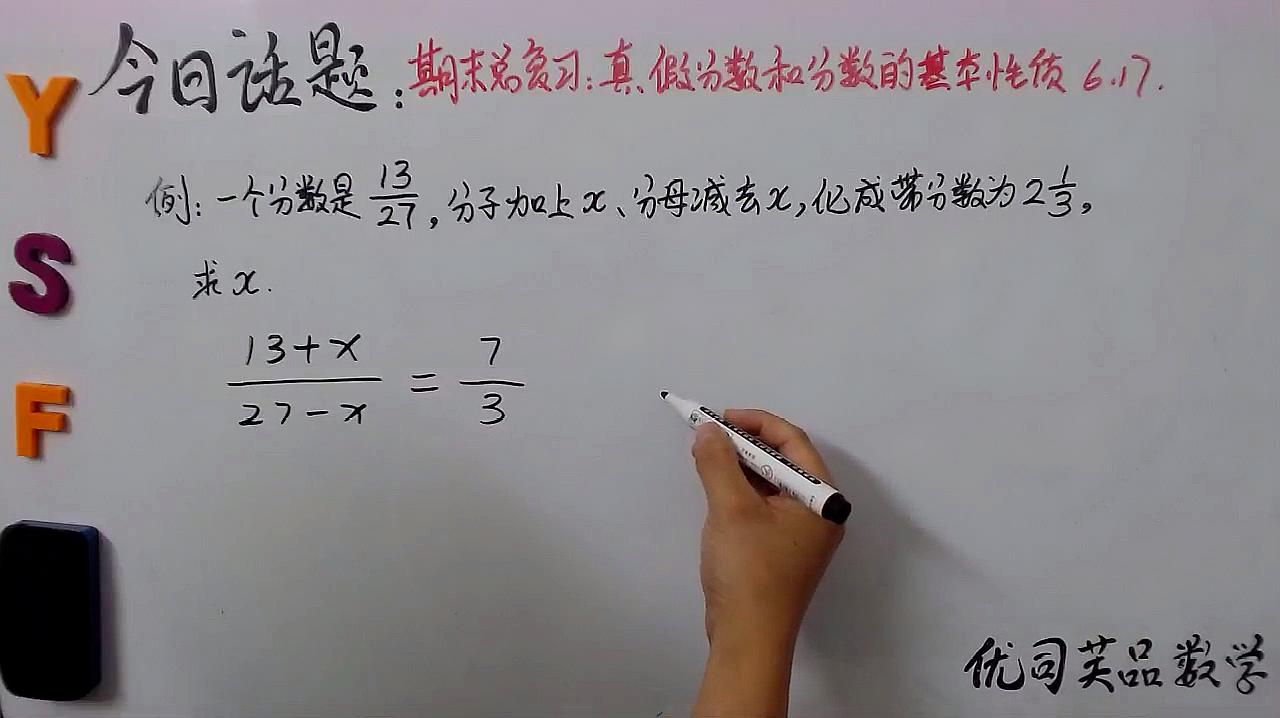 今日话题：期末总复习：真、假分数和分数的基本性质 6.17.
例：一个分数是 13/27，分子加上 x、分母减去 x，化成带分数为 2 1/3，
求 x.
13+x / 27-x = 7/3
Y
S
F
优司芙品数学